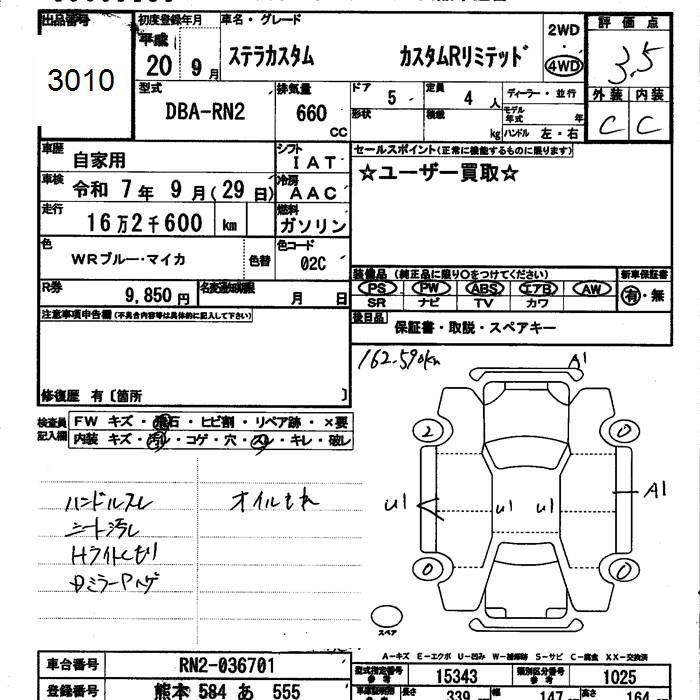 出品番号
3010
初度登録年月
平成
20 9月
車名・グレード
ステラカスタム カスタムRリミテッド
2WD
・
4WD
評価点
3.5
外装 内装
C C
型式
DBA-RN2
排気量
660 cc
ドア 5
定員 4 人
形状
積載 kg
ディーラー・並行
モデル年式 年
ハンドル 左・右
車歴 自家用
シフト IAT
車検 令和 7年 9月(29日)
冷房 AAC
走行 16万2千600 km
燃料 ガソリン
色 WRブルー・マイカ
色替
色コード 02C
R券 9,850円
名変通知期限 月 日
セールスポイント(正常に機能するものに限ります)
☆ユーザー買取☆
装備品 (純正品に限り○をつけてください)
PS PW ABS エアB AW
SR ナビ TV カワ
新車保証書
有・無
後日品 保証書・取説・スペアキー
注意事項申告欄(不具合内容等は具体的に記入して下さい)
修復歴 有〔箇所 〕
検査員記入欄
FW キズ・飛石・ヒビ割・リペア跡・×要
内装 キズ・汚レ・コゲ・穴・スレ・キレ・破レ
ハンドルスレ
シート汚レ
Hライトくもり
Dミラーハゲ
オイルもれ
162.590km
A1
2 0
U1 U1 U1 A1
0 0
スペア
A-キズ E-エクボ U-凹み W-補修跡 S-サビ C-腐食 XX-交換済
車台番号 RN2-036701
型式指定番号 参考 15343
類別区分番号 参考 1025
登録番号 熊本 584 あ 555
長さ 339 幅 147 高さ 164